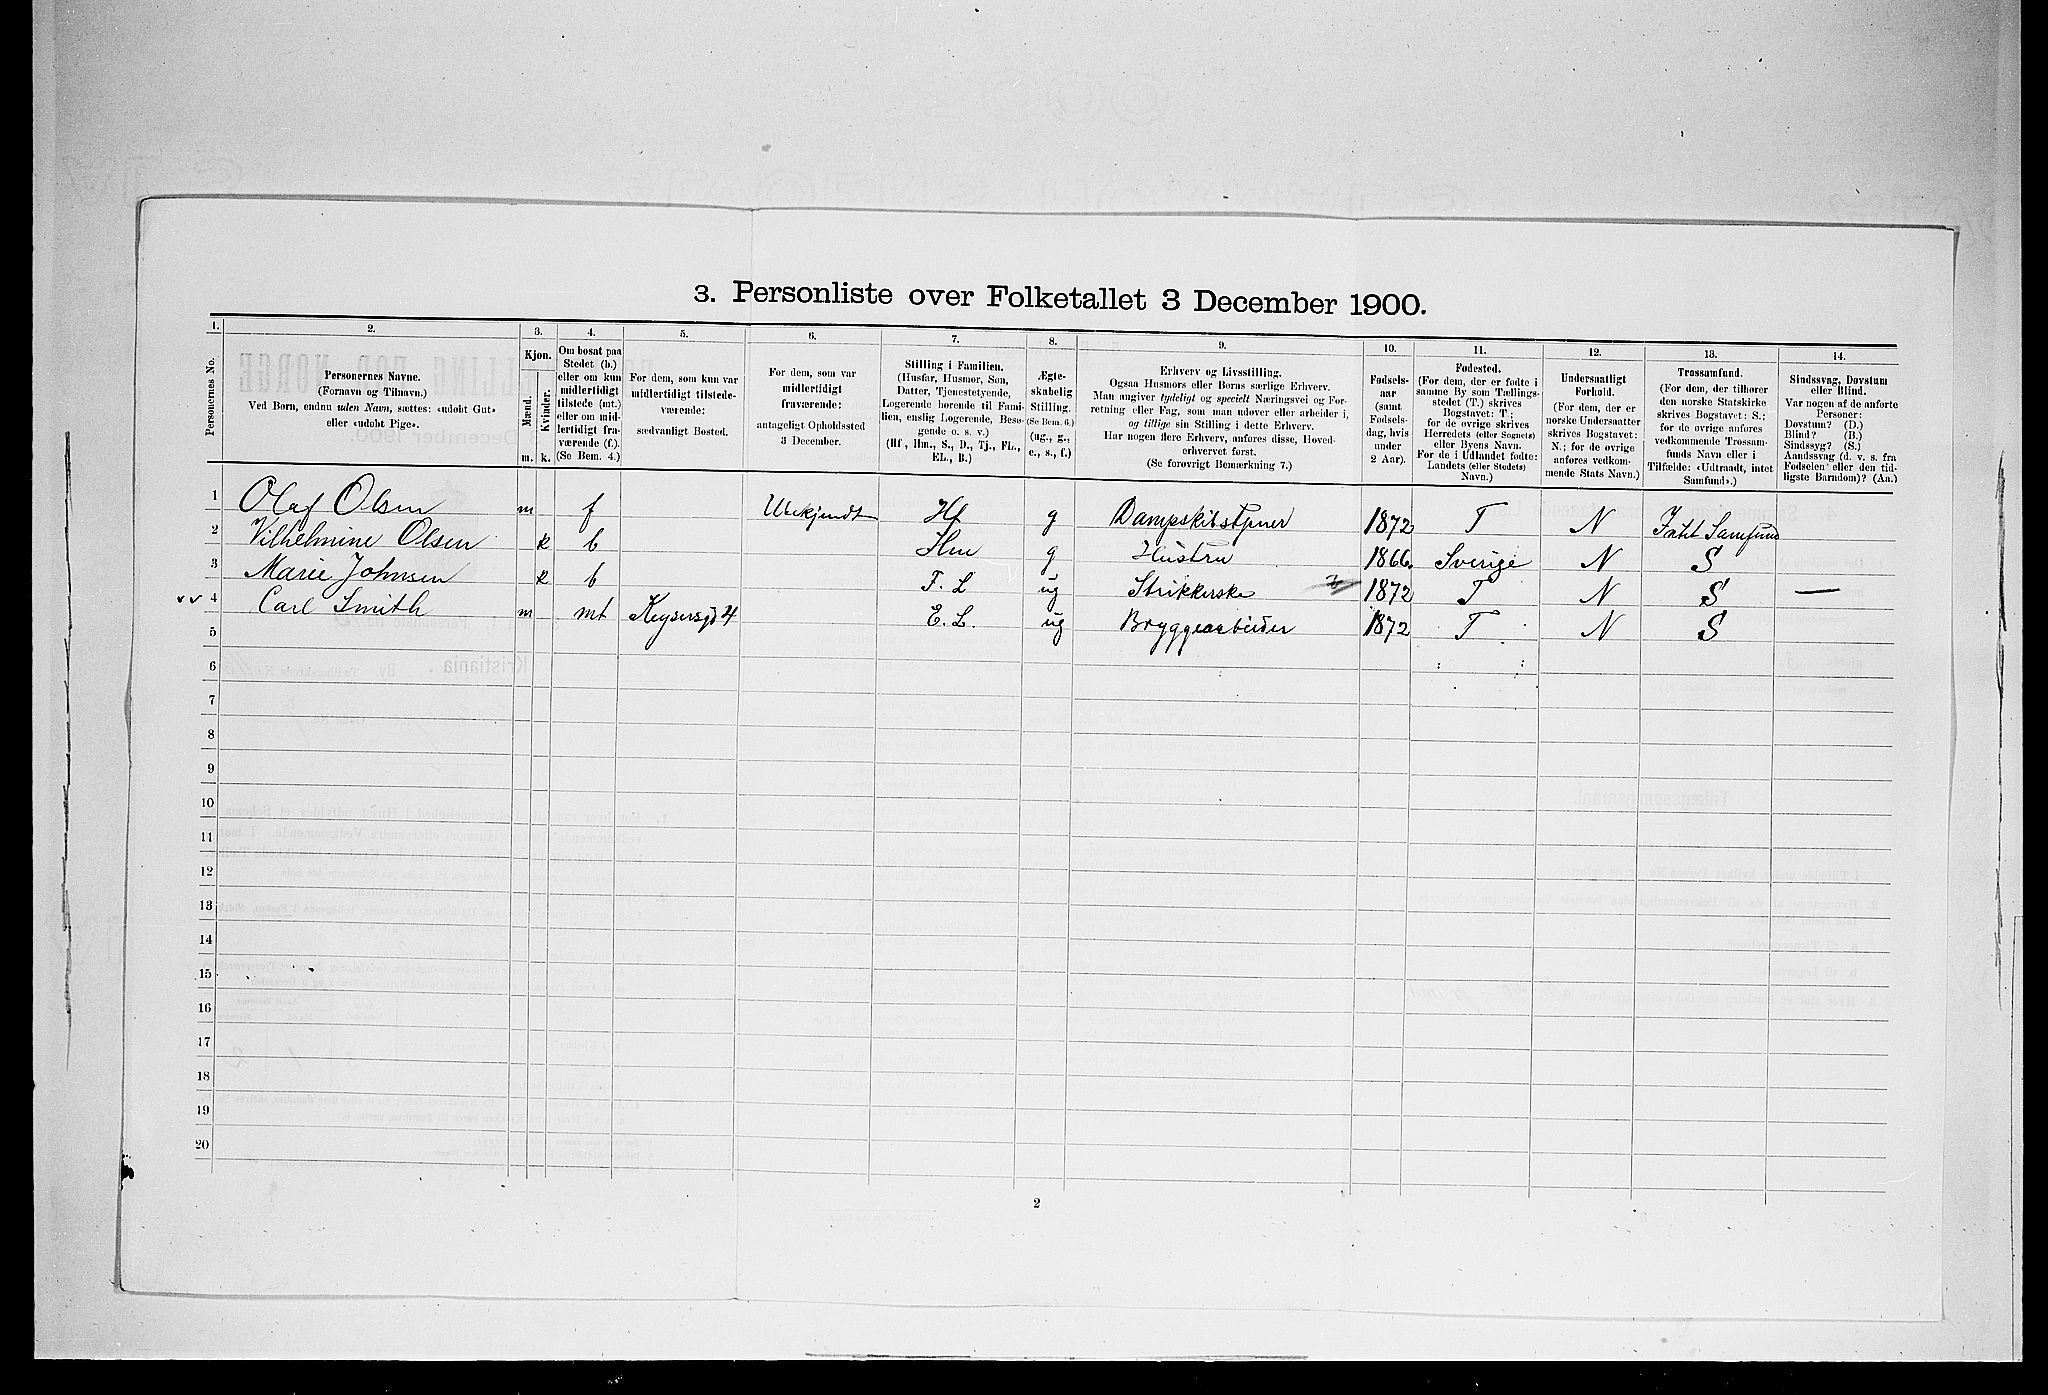 3. Personliste over Folketallet 3 December 1900.
1.
2.
3.
4.
5.
6.
7.
8.
9.
10.
11.
12.
13.
14.
Personernes No.
Personernes Navne.
(Fornavn og Tilnavn.)
Ved Børn, endnu uden Navn, sættes: «udøbt Gut»
eller «udøbt Pige».
Kjøn.
Mænd.
Kvinder.
m.
k.
Om bosat paa
Stedet (b.)
eller om kun
midlertidigt
tilstede (mt.)
eller om mid-
lertidigt fra-
værende (f.).
(Se Bem. 4.)
For dem, som kun var
midlertidigt tilstede-
værende:
sædvanligt Bosted.
For dem, som var
midlertidigt
fraværende:
antageligt Opholdssted
3 December.
Stilling i Familien.
(Husfar, Husmor, Søn,
Datter, Tjenestetyende,
Logerende hørende til Fami-
lien, enslig Logerende, Besø-
gende o. s. v.)
(Hf., Hm., S., D., Tj., FL.,
EL., B.)
Ægte-
skabelig
Stilling.
(Se Bem. 6.)
(ug., g.,
e., s., f.)
Erhverv og Livsstilling.
Ogsaa Husmors eller Børns særlige Erhverv.
Man angiver tydeligt og specielt Næringsvei og For-
retning eller Fag, som man udøver eller arbeider i,
og tillige sin Stilling i dette Erhverv.
Har nogen flere Erhverv, anføres disse, Hoved-
erhvervet først.
(Se forøvrigt Bemærkning 7.)
Fødsels-
aar
(samt
Fødsels-
dag, hvis
under
2 Aar).
Fødested.
(For dem, der er fødte i
samme By som Tællings-
stedet (T.) skrives
Bogstavet: T.;
for de øvrige skrives
Herredets (eller Sognets)
eller Byens Navn.
For de i Udlandet fødte:
Landets (eller Stedets)
Navn.)
Undersaatligt
Forhold.
(For dem, der er
norske Undersaatter
skrives Bogstavet:
N.; for de øvrige
anføres vedkom-
mende Stats Navn.)
Trossamfund.
(For dem, der tilhører
den norske Statskirke
skrives Bogstavet: S.;
for de øvrige anføres
vedkommende Trossam-
funds Navn eller i
Tilfælde: «Udtraadt, intet
Samfund».)
Sindssvag, Døvstum
eller Blind.
Var nogen af de anførte
Personer:
Døvstum? (D.)
Blind? (B.)
Sindssyg? (S.)
Aandssvag (d. v. s. fra
Fødselen eller den tid-
ligste Barndom)? (Aa.)
1 Olaf Olsen m f Ubekjendt Hf g Dampskibsfyrer 1872 T N Intet Samfund
2 Vilhelmine Olsen k b Hm g Hustru 1866 Sverige N S
3 Marie Johnsen k b F. L ug Strikkerske 1872 T N S —
4 Carl Smith m mt Keysersgd 4 E. L. ug Bryggearbeider 1872 T N S
5
6
7
8
9
10
11
12
13
14
15
16
17
18
19
20
2